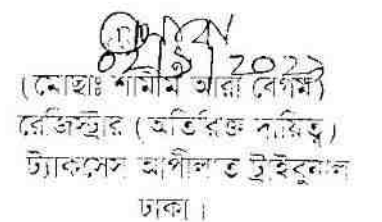 (মোছাঃ শামীম আরা বেগম)
রেজিস্ট্রার (অতিরিক্ত দায়িত্ব)
ট্যাকসেস আপীলাত ট্রাইবুনাল
ঢাকা।